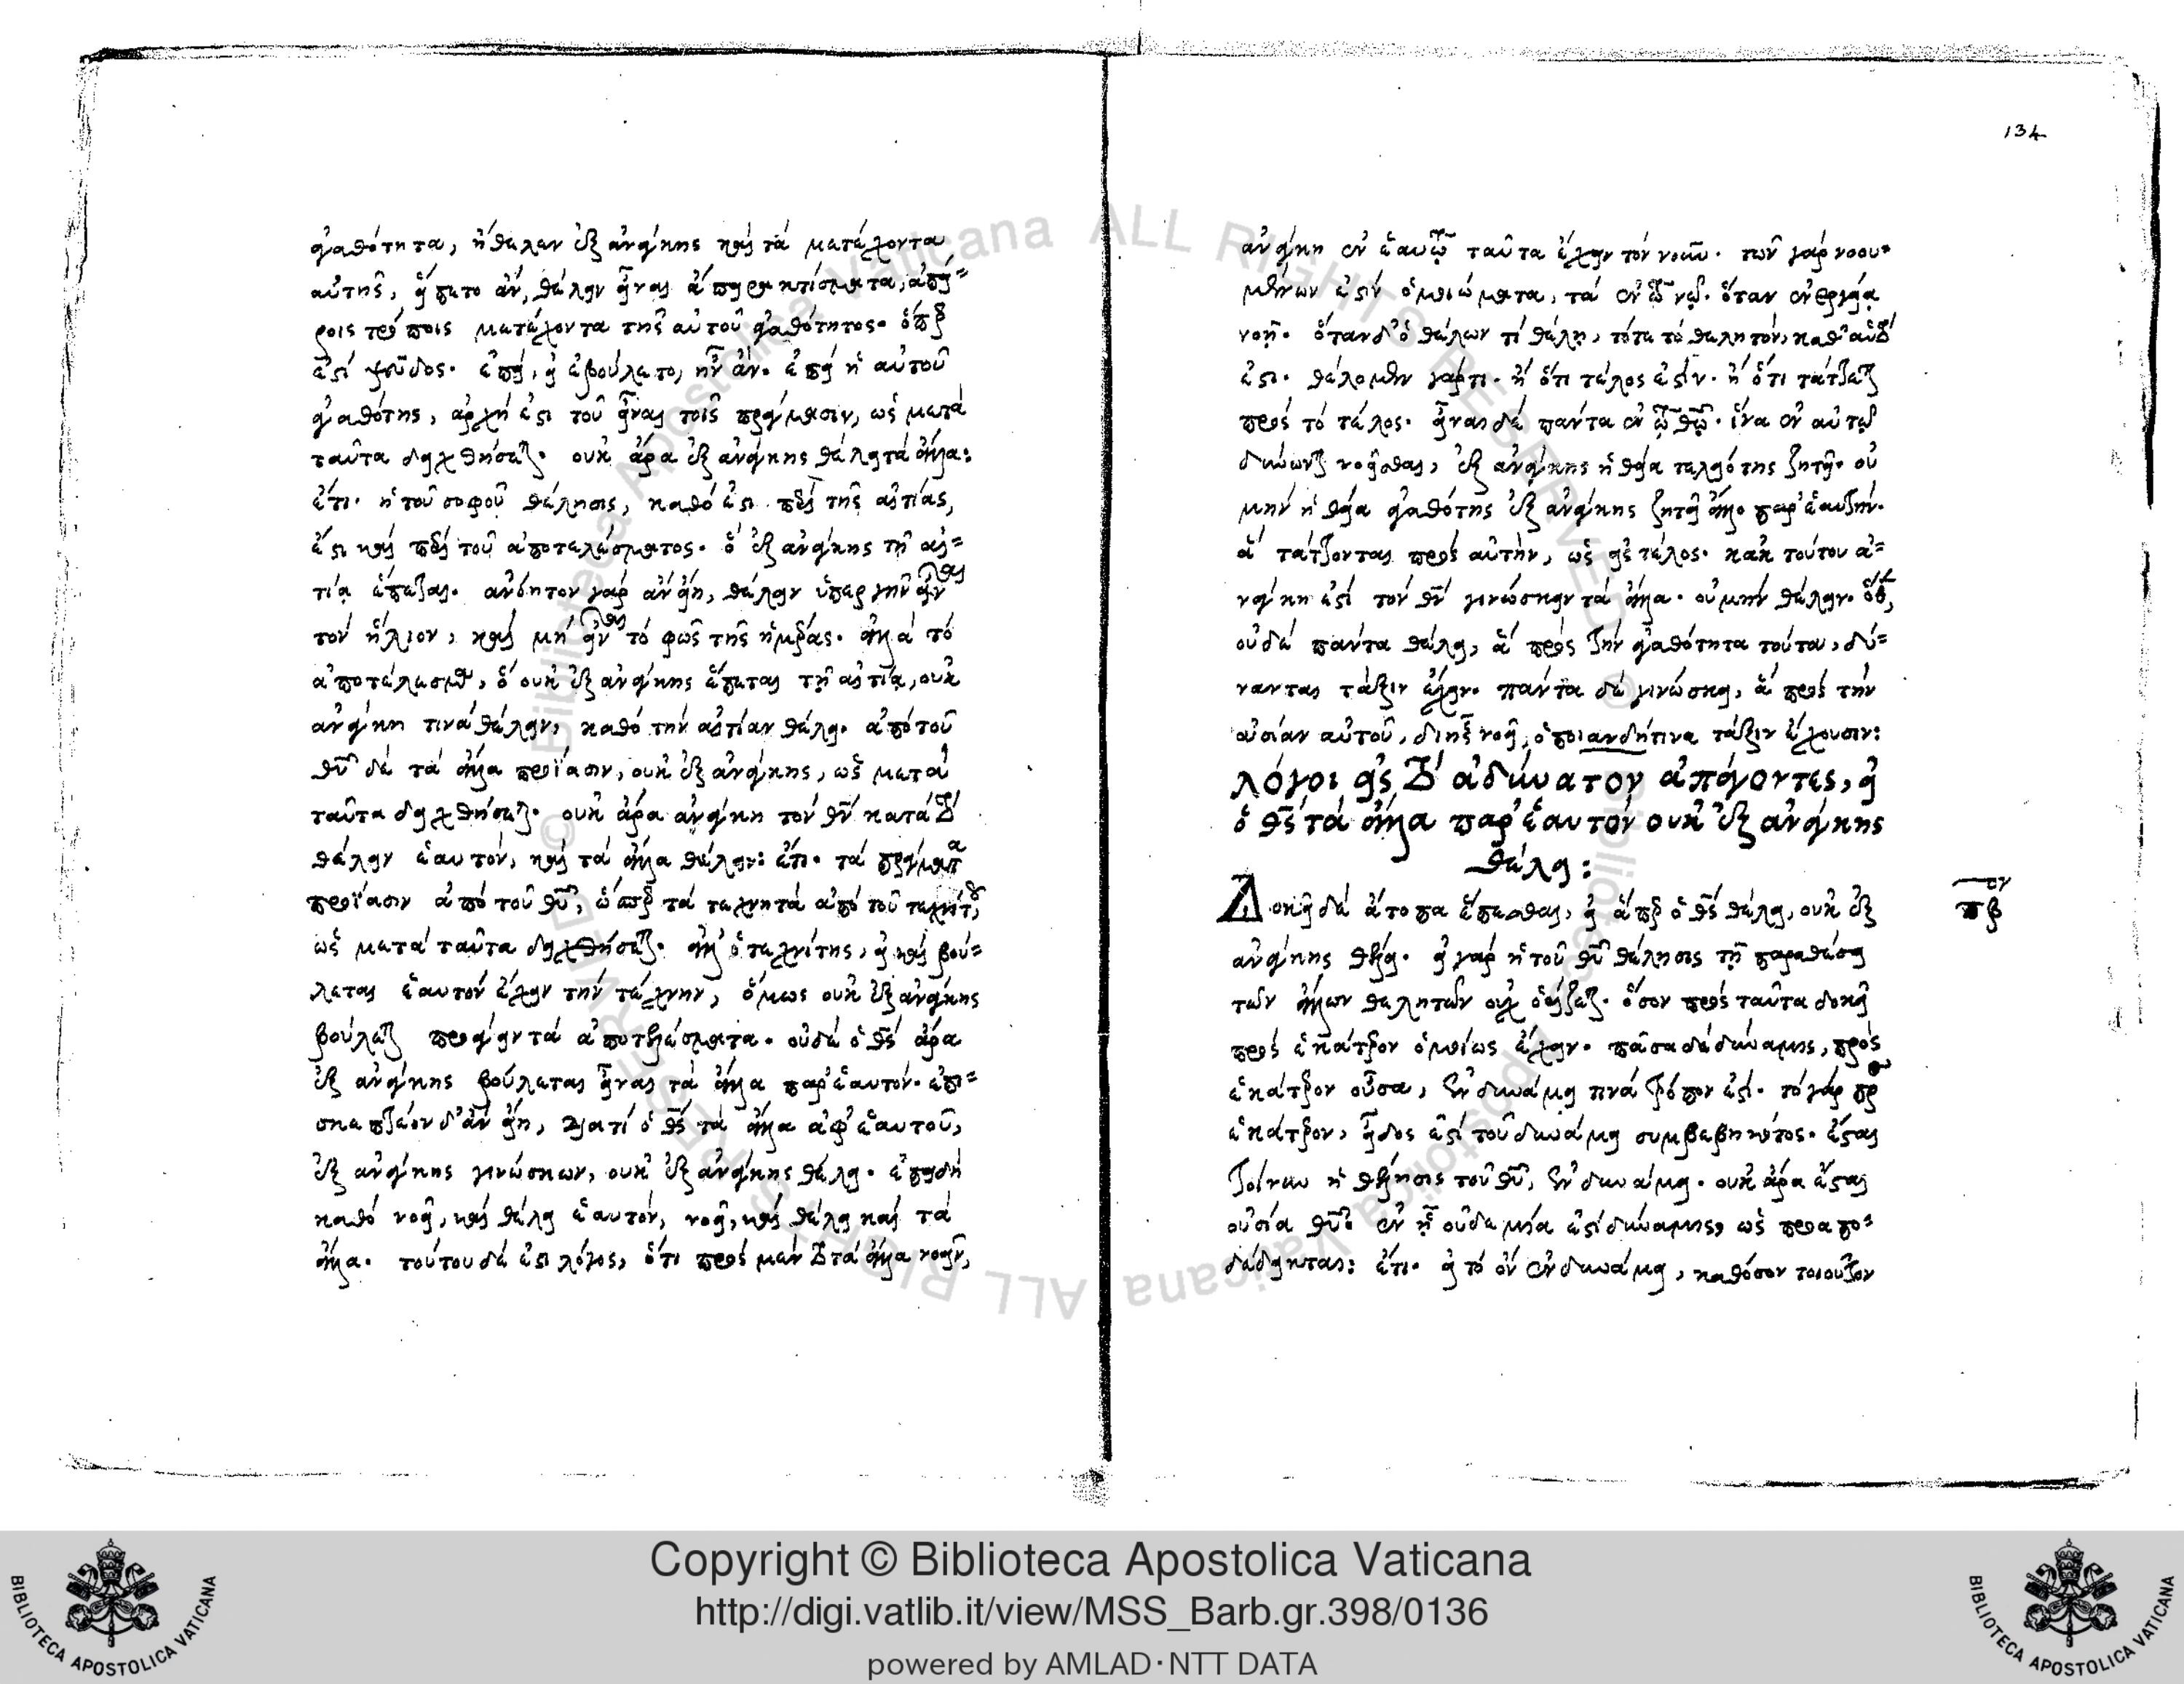 ἀγαθότητα, ἤθελεν ἐξ ἀνάγκης καὶ τὰ μετέχοντα
αὐτῆς, εἵπετο ἄν, θέλειν εἶναι
τρόποις μετέχοντα τῆς αὐτοῦ ἀγαθότητος. ὅπερ
ἐστὶ ψεῦδος. ἐπεί, εἰ ἐβούλετο, ἦν ἄν. ἐπεὶ ἡ αὐτοῦ
ἀγαθότης, ἀρχή ἐστι τοῦ εἶναι τοῖς πράγμασιν, ὡς μετὰ
ταῦτα δειχθήσεται. οὐκ ἄρα ἐξ ἀνάγκης θέλει τὰ ἄλλα:
ἔτι. ἡ τοῦ σοφοῦ θέλησις, καθό ἐστι περὶ τῆς αἰτίας,
ἐστὶ καὶ περὶ τοῦ ἀποτελέσματος. ὃ ἐξ ἀνάγκης τῇ αἰ=
τίᾳ ἕπεται. ἀνόητον γὰρ ἂν εἴη, θέλειν ὑπὲρ γῆν εἶναι
τὸν ἥλιον, καὶ μὴ εἶναι τὸ φῶς τῆς ἡμέρας. ἀλλὰ τὸ
ἀποτέλεσμα, ὃ οὐκ ἐξ ἀνάγκης ἕπεται τῇ αἰτίᾳ, οὐκ
ἀνάγκη τινὰ θέλειν, καθὸ τὴν αἰτίαν θέλει. ἀπὸ τοῦ
θῦ δὲ τὰ ἄλλα προΐασιν, οὐκ ἐξ ἀνάγκης, ὡς μετὰ
ταῦτα δειχθήσεται. οὐκ ἄρα ἀνάγκη τὸν θν κατὰ τὸ
θέλειν ἑαυτόν, καὶ τὰ ἄλλα θέλειν: ἔτι. τὰ πράγματα
προΐασιν ἀπὸ τοῦ θῦ, ὥσπερ τὰ τεχνητὰ ἀπὸ τοῦ τεχνίτου,
ὡς μετὰ ταῦτα δειχθήσεται. ἀλλ' ὁ τεχνίτης, εἰ καὶ βού=
λεται ἑαυτὸν ἔχειν τὴν τέχνην, ὅμως οὐκ ἐξ ἀνάγκης
βούλεται προάγειν τὰ ἀποτελέσματα. οὐδὲ ὁ θς ἄρα
ἐξ ἀνάγκης βούλεται εἶναι τὰ ἄλλα παρ' ἑαυτόν. ἐπι=
σκεπτέον δ' ἂν εἴη, διατί ὁ θς τὰ ἄλλα ἀφ' ἑαυτοῦ,
ἐξ ἀνάγκης γινώσκων, οὐκ ἐξ ἀνάγκης θέλει. ἐπειδὴ
καθὸ νοεῖ, καὶ θέλει ἑαυτόν, νοεῖ, καὶ θέλει καὶ τὰ
ἄλλα. τούτου δέ ἐστι λόγος, ὅτι πρὸς μὲν τὸ τὰ ἄλλα νοεῖν,
134
ἀνάγκη ἐν ἑαυτῷ ταῦτα ἔχειν τὸν νοῦν. τῶν γὰρ νοου=
μένων εἰσὶν ὁμοιώματα, τὰ ἐν τῷ νῷ. ὅταν ἐνεργείᾳ
νοῇ. ὅταν δ' ὁ θέλων τὶ θέλῃ, τότε τὸ θελητόν, καθ' αὑτό
ἐστι. θέλομεν γάρ τι. ἢ ὅτι τέλος ἐστίν. ἢ ὅτι τάττεται
πρὸς τὸ τέλος. εἶναι δὲ πάντα ἐν τῷ θῷ. ἵνα ἐν αὐτῷ
δύνωνται νοεῖσθαι, ἐξ ἀνάγκης ἡ θεία τελειότης ζητεῖ. οὐ
μὴν ἡ θεία ἀγαθότης ἐξ ἀνάγκης ζητεῖ ἄλλο παρ' ἑαυτήν.
ἃ τάττονται πρὸς αὐτήν, ὡς εἰς τέλος. κἀκ τούτου ἀ=
νάγκη ἐστὶ τὸν θν γινώσκειν τὰ ἄλλα. οὐ μὴν θέλειν. ὅθεν,
οὐδὲ πάντα θέλει, ἃ πρὸς τὴν ἀγαθότητα τούτου, δύ=
νανται τάξιν ἔχειν. πάντα δὲ γινώσκει, ἃ πρὸς τὴν
οὐσίαν αὐτοῦ, δι' ἧς νοεῖ, ὁποιανδήτινα τάξιν ἔχουσιν:
λόγοι εἰς τὸ ἀδύνατον ἀπάγοντες, εἰ
ὁ θς τὰ ἄλλα παρ' ἑαυτὸν οὐκ ἐξ ἀνάγκης
θέλει:
Δοκεῖ δὲ ἄτοπα ἕπεσθαι, εἰ ἅπερ ὁ θς θέλει, οὐκ ἐξ
ἀνάγκης θέλει. εἰ γὰρ ἡ τοῦ θῦ θέλησις τῇ παραθέσει
τῶν ἄλλων θελητῶν οὐχ ὁρίζεται. ὅσον πρὸς ταῦτα δοκεῖ
πρὸς ἑκάτερον ὁμοίως ἔχειν. πᾶσα δὲ δύναμις, πρὸς
ἑκάτερον οὖσα, ἐν δυνάμει τινὰ τρόπον ἐστί. τὸ γὰρ πρὸς
ἑκάτερον, εἶδος ἐστὶ τοῦ δυνάμει συμβεβηκότος. ἔσται
τοίνυν ἡ θέλησις τοῦ θῦ, ἐν δυνάμει. οὐκ ἄρα ἔσται
οὐσία θῦ. ἐν ᾗ οὐδεμία ἐστὶ δύναμις, ὡς προαπο=
δέδεικται: ἔτι. εἰ τὸ ὂν ἐν δυνάμει, καθόσον τοιοῦτον
ον
πβ
Copyright © Biblioteca Apostolica Vaticana
http://digi.vatlib.it/view/MSS_Barb.gr.398/0136
powered by AMLAD·NTT DATA
BIBLIOTECA APOSTOLICA VATICANA
BIBLIOTECA APOSTOLICA VATICANA